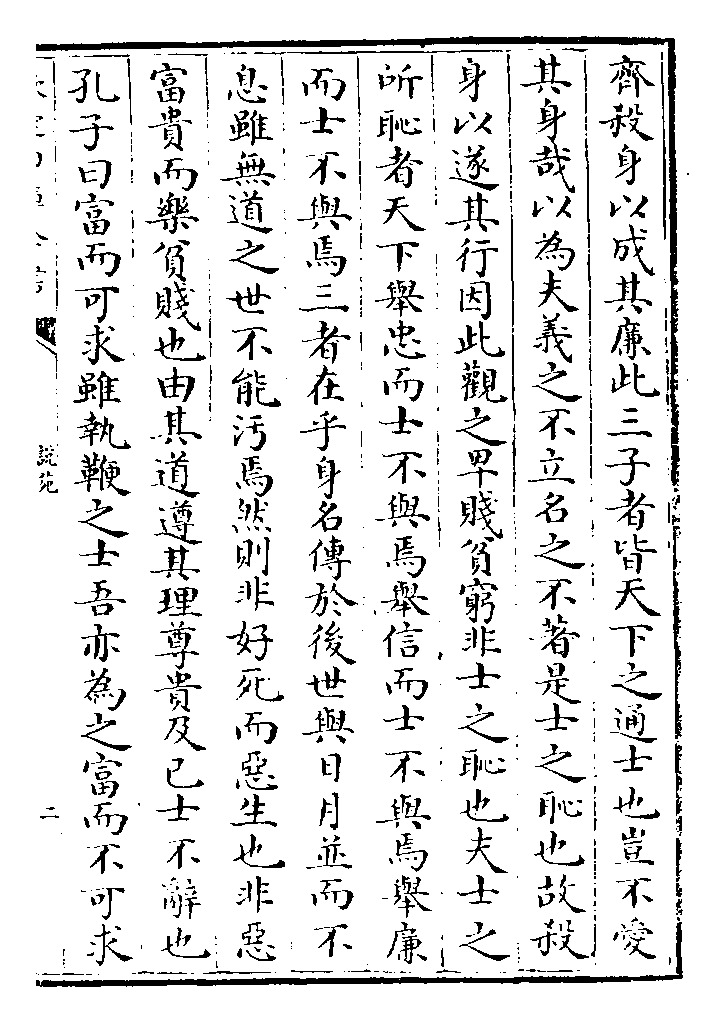 齊殺身以成其廉此三子者皆天下之通士也豈不愛
其身哉以為夫義之不立名之不著是士之恥也故殺
身以遂其行因此觀之卑賤貧窮非士之恥也夫士之
所恥者天下舉忠而士不與焉舉信而士不與焉舉廉
而士不與焉三者在乎身名傳於後世與日月並而不
息雖無道之世不能汚焉然則非好死而惡生也非惡
富貴而樂貧賤也由其道遵其理尊貴及己士不辭也
孔子曰富而可求雖執鞭之士吾亦為之富而不可求
說苑
二